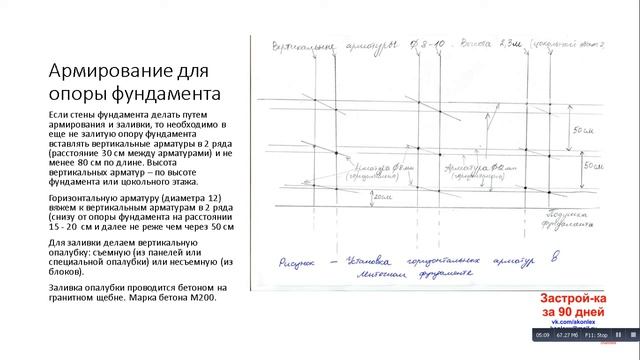 Армирование для
опоры фундамента
Если стены фундамента делать путем
армирования и заливки, то необходимо в
еще не залитую опору фундамента
вставлять вертикальные арматуры в 2 ряда
(расстояние 30 см между арматурами) и не
менее 80 см по длине. Высота
вертикальных арматур – по высоте
фундамента или цокольного этажа.
Горизонтальную арматуру (диаметра 12)
вяжем к вертикальным арматурам в 2 ряда
(снизу от опоры фундамента на расстоянии
15 - 20 см и далее не реже чем через 50 см
Для заливки делаем вертикальную
опалубку: съемную (из панелей или
специальной опалубки) или несъемную (из
блоков).
Заливка опалубки проводится бетоном на
гранитном щебне. Марка бетона М200.
Вертикальные арматуры Ø 8-10. Высота 2,3м (цокольный
50 см
50 см
Арматура
Арматура
20см
Подушка
фундамента
Рисунок – Установка горизонтальных арматур в
ленточном фундаменте
Застрой-ка
за 90 дней
vk.com/akonlex
05:09 67.27 Мб F11: Stop